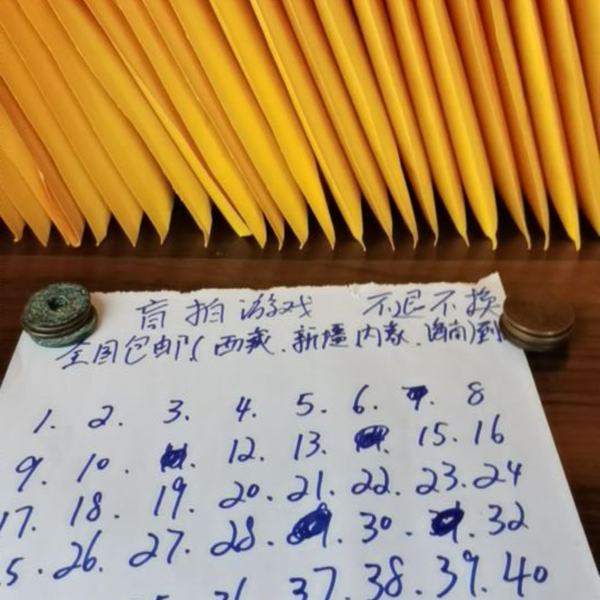 盲拍游戏 不退不换
全国包邮(西藏.新疆内蒙.到
1. 2. 3. 4. 5. 6. 8
9. 10. 12. 13. 15. 16
17. 18. 19. 20. 21. 22. 23. 24
5. 26. 27. 28. 30. 32
37. 38. 39. 40